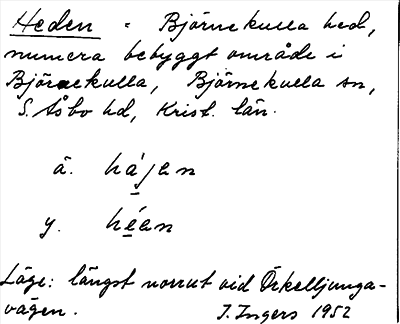 Heden = Björnekulla hed,
numera bebyggt område i
Björnekulla, Björnekulla sn,
S. Åsbo hd, Krist. län.
ä. hàjen
y. héen
Läge: längst norrut vid Örkelljunga-
vägen. J. Ingers 1952